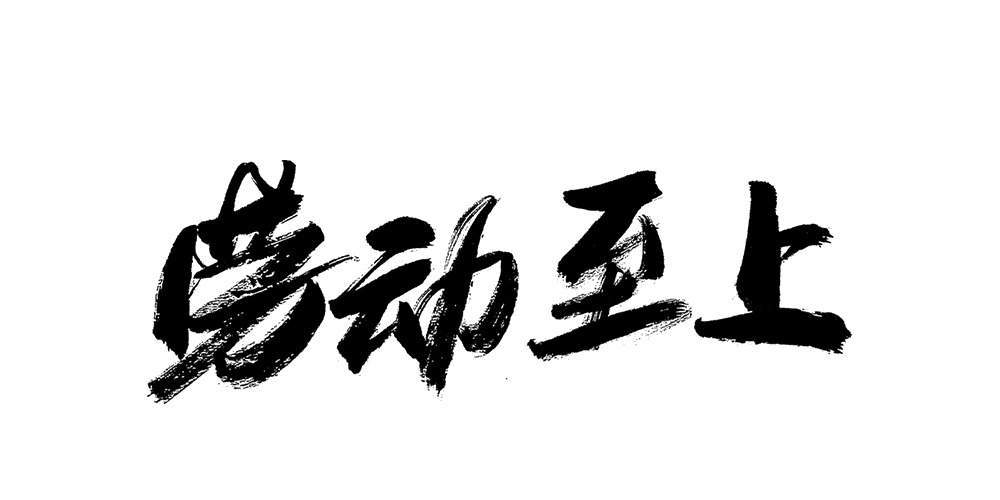 劳动至上